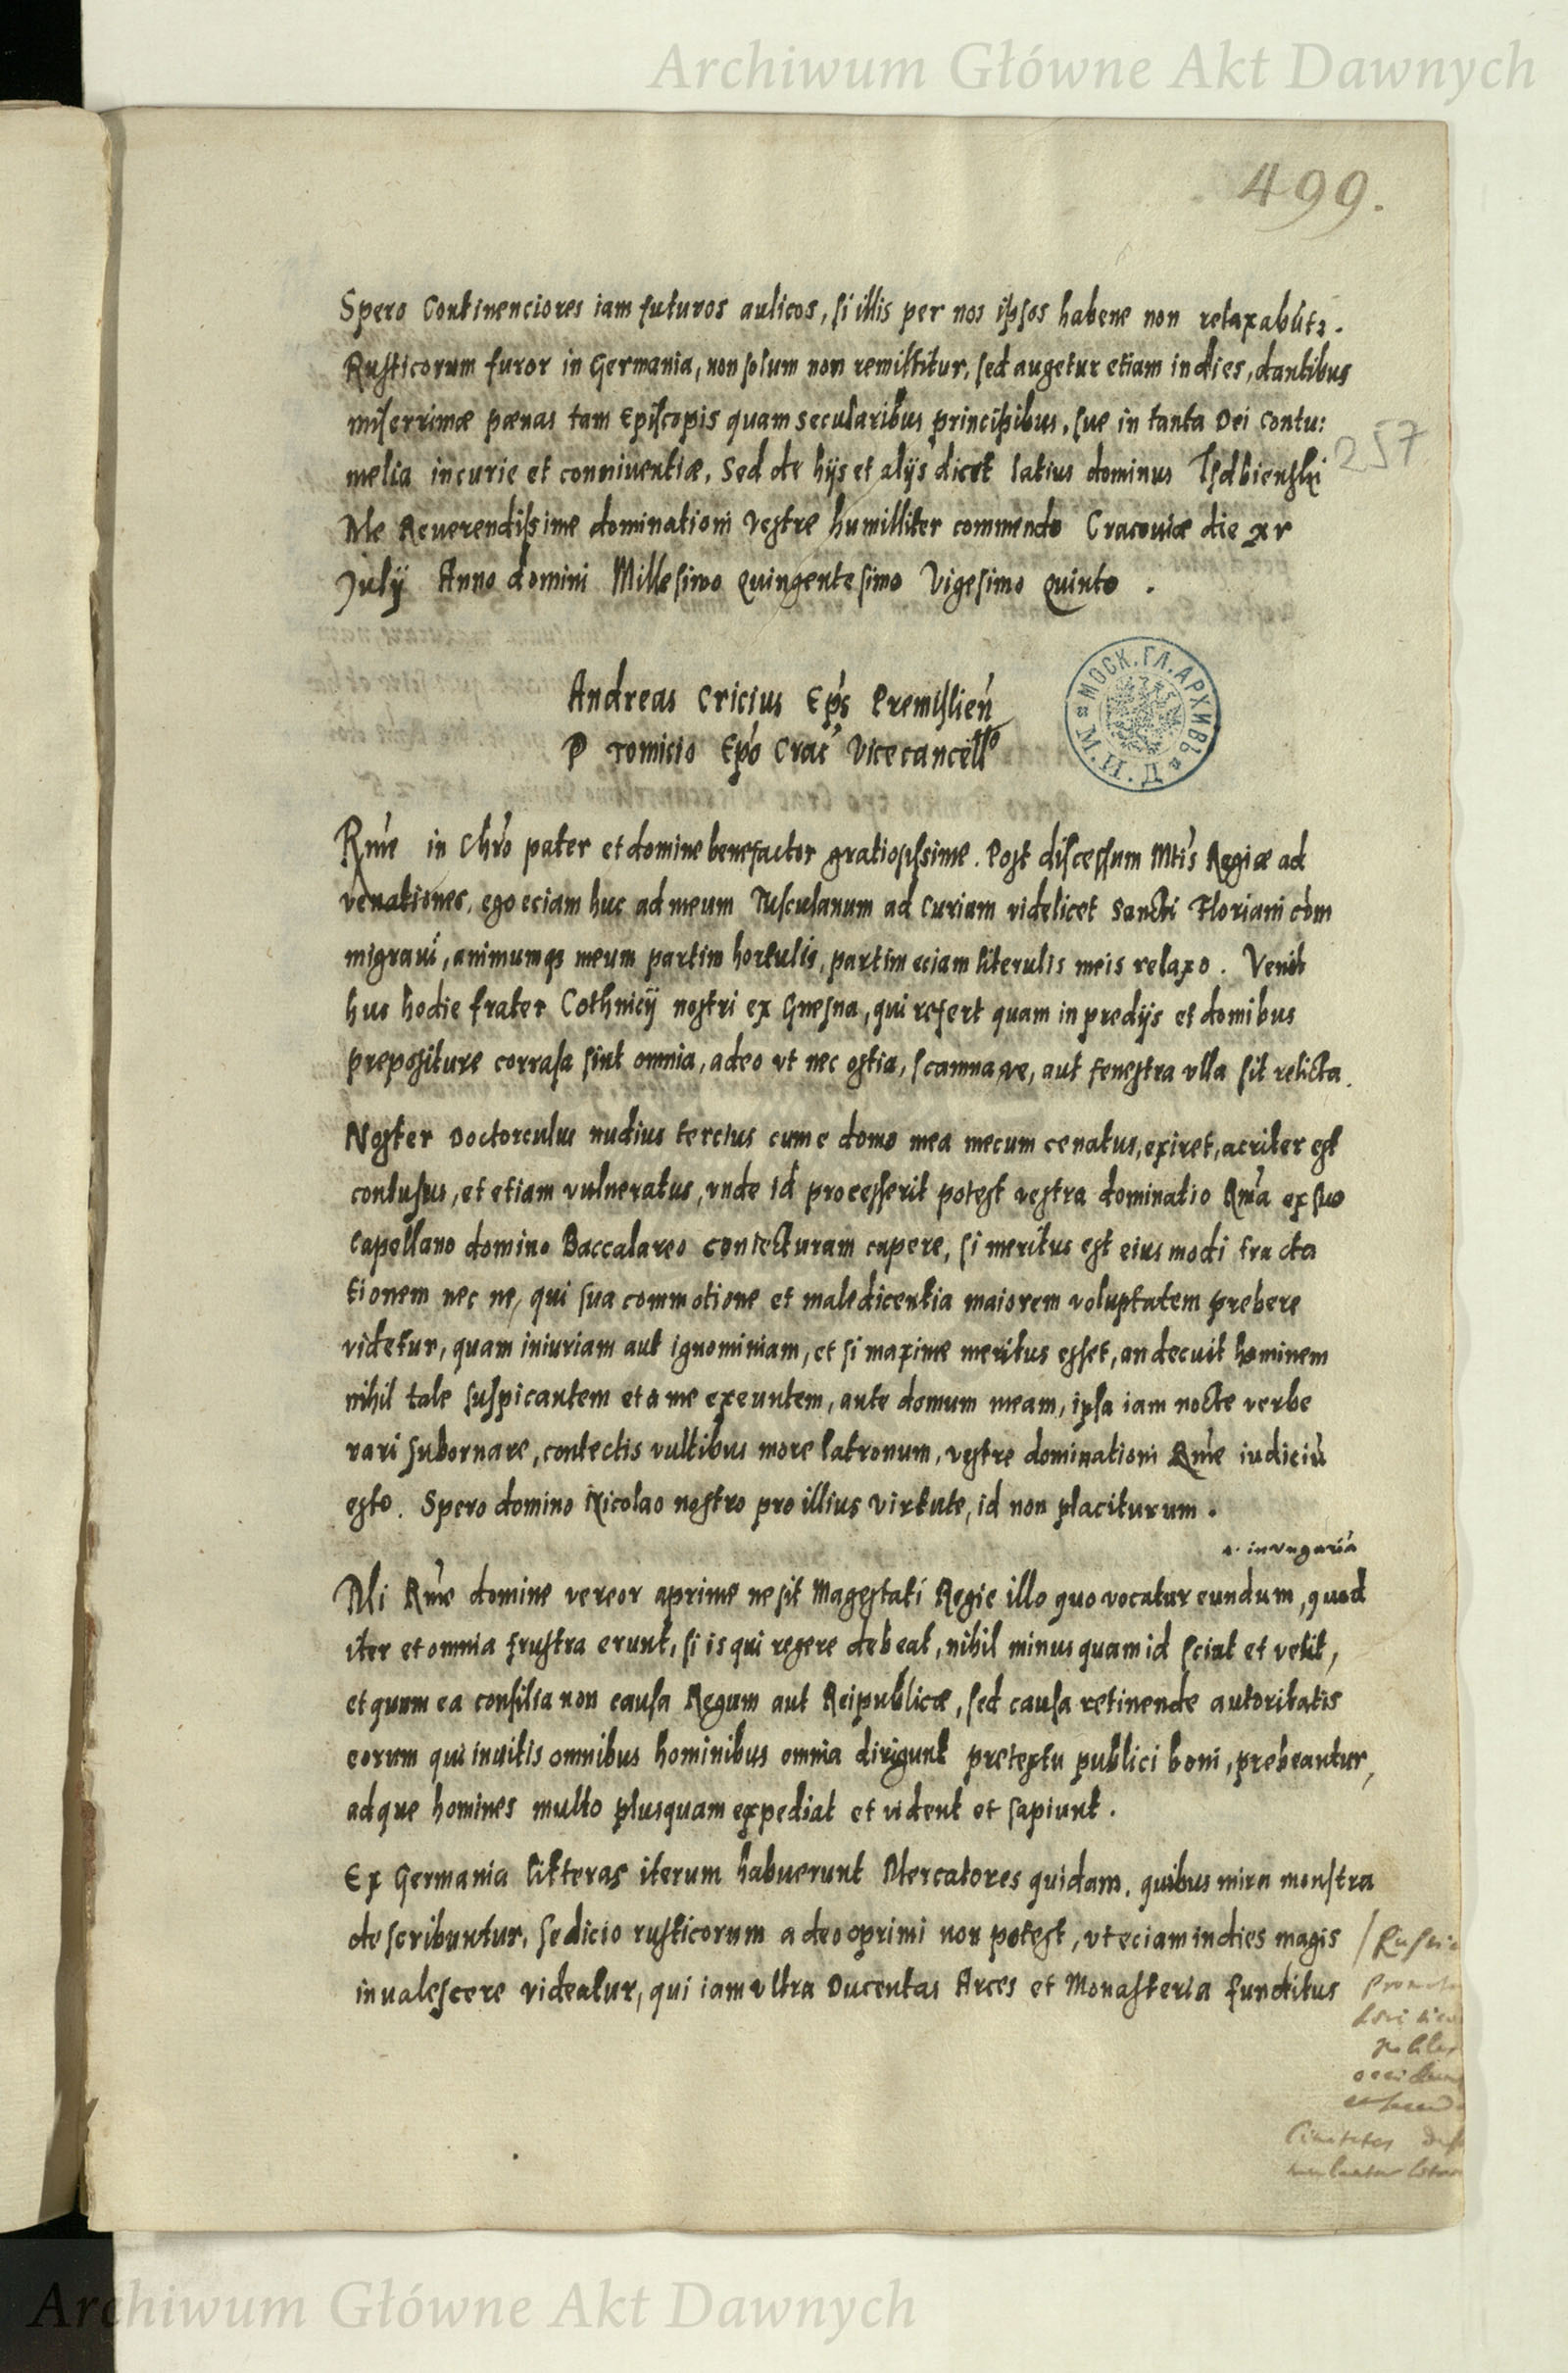 Archiwum Główne Akt Dawnych
499.
Spero Continenciores iam futuros aulicos, si illis per nos ipsos habene non relaxabūtr.
Rusticorum furor in Germania, non solum non remittitur, sed augetur etiam in dies, dantibus
miserrimæ pænas tam Episcopis quam secularibus principibus, sue in tanta Dei Contu:
melia incurie et conniventiæ. Sed de hijs et alijs dicet latius dominus
257
Me Reverendissime dominationi Vestre humilliter commendo Cracoviæ die xv
Julij Anno domini Millesimo Quingentesimo Vigesimo Quinto .
Andreas Cricius Ep̃s Premislien̄
P Tomicio Ep̃o Crac̃ Vicecancell̃o
МОСК. ГЛ. АРХИВЪ М. И. Д.
Rm̃e in Chr̃o pater et domine benefactor gratiosissime. Post discessum Mt̃is Regiæ ad
venationes, ego eciam huc ad meum Tusculanum ad Curiam videlicet Sancti Floriani com
migravi, animumq3 meum partim hortulis, partim eciam literulis meis relaxo. Venit
huc hodie frater Cothnicij nostri ex Gnesna, qui refert quam in predijs et domibus
prepositure corrasa sint omnia, adeo vt nec ostia, scamna ve, aut fenestra vlla sit relicta.
Noster Doctorculus nudius tercius cum e domo mea mecum cenatus, exiret, acriter est
contusus, et etiam vulneratus, vnde id processerit potest vestra dominatio Rm̃a ex suo
Capellano domino Baccalareo coniecturam capere, si meritus est eius modi tracta
tionem nec ne, qui sua commotione et maledicentia maiorem voluptatem prebere
videtur, quam iniuriam aut ignominiam, et si maxime meritus esset, an decuit hominem
nihil tale suspicantem et a me exeuntem, ante domum meam, ipsa iam nocte verbe
rari subornare, contectis vultibus more latronum, vestre dominationi Rm̃e iudiciū
esto. Spero domino Nicolao nostro pro illius virtute, id non placiturum.
in vngariā
Mi Rm̃e domine vereor aprime ne sit Magestati Regie illo quo vocatur eundum, quod
iter et omnia frustra erunt, si is qui regere debeat, nihil minus quam id sciat et velit,
et quum ea consilia non causa Regum aut Reipublicæ, sed causa retinende autoritatis
eorum qui invitis omnibus hominibus omnia dirigunt pretextu publici boni, prebeantur,
ad que homines multo plusquam expediat et vident et sapiunt.
Ex Germania litteras iterum habuerunt Mercatores quidam, quibus mira monstra
describuntur, sedicio rusticorum adeo oprimi non potest, vt eciam in dies magis
invalescere videatur, qui iam vltra Ducentas Arces et Monasteria funditus
Civitates
Archiwum Główne Akt Dawnych